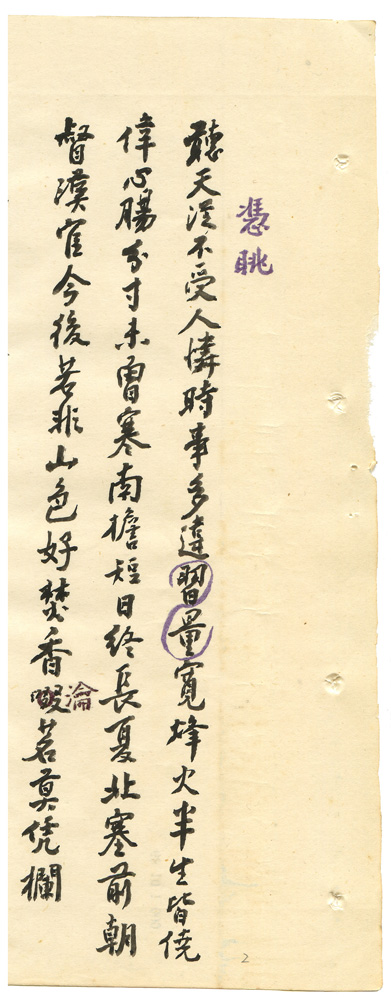 憑眺
聽天從不受人憐時事多違習量寬烽火半生皆僥
倖心腸分寸未曾寒南檐短日終長夏北塞前朝
督漢官今後若非山色好焚香啜淪茗莫凭欄
2